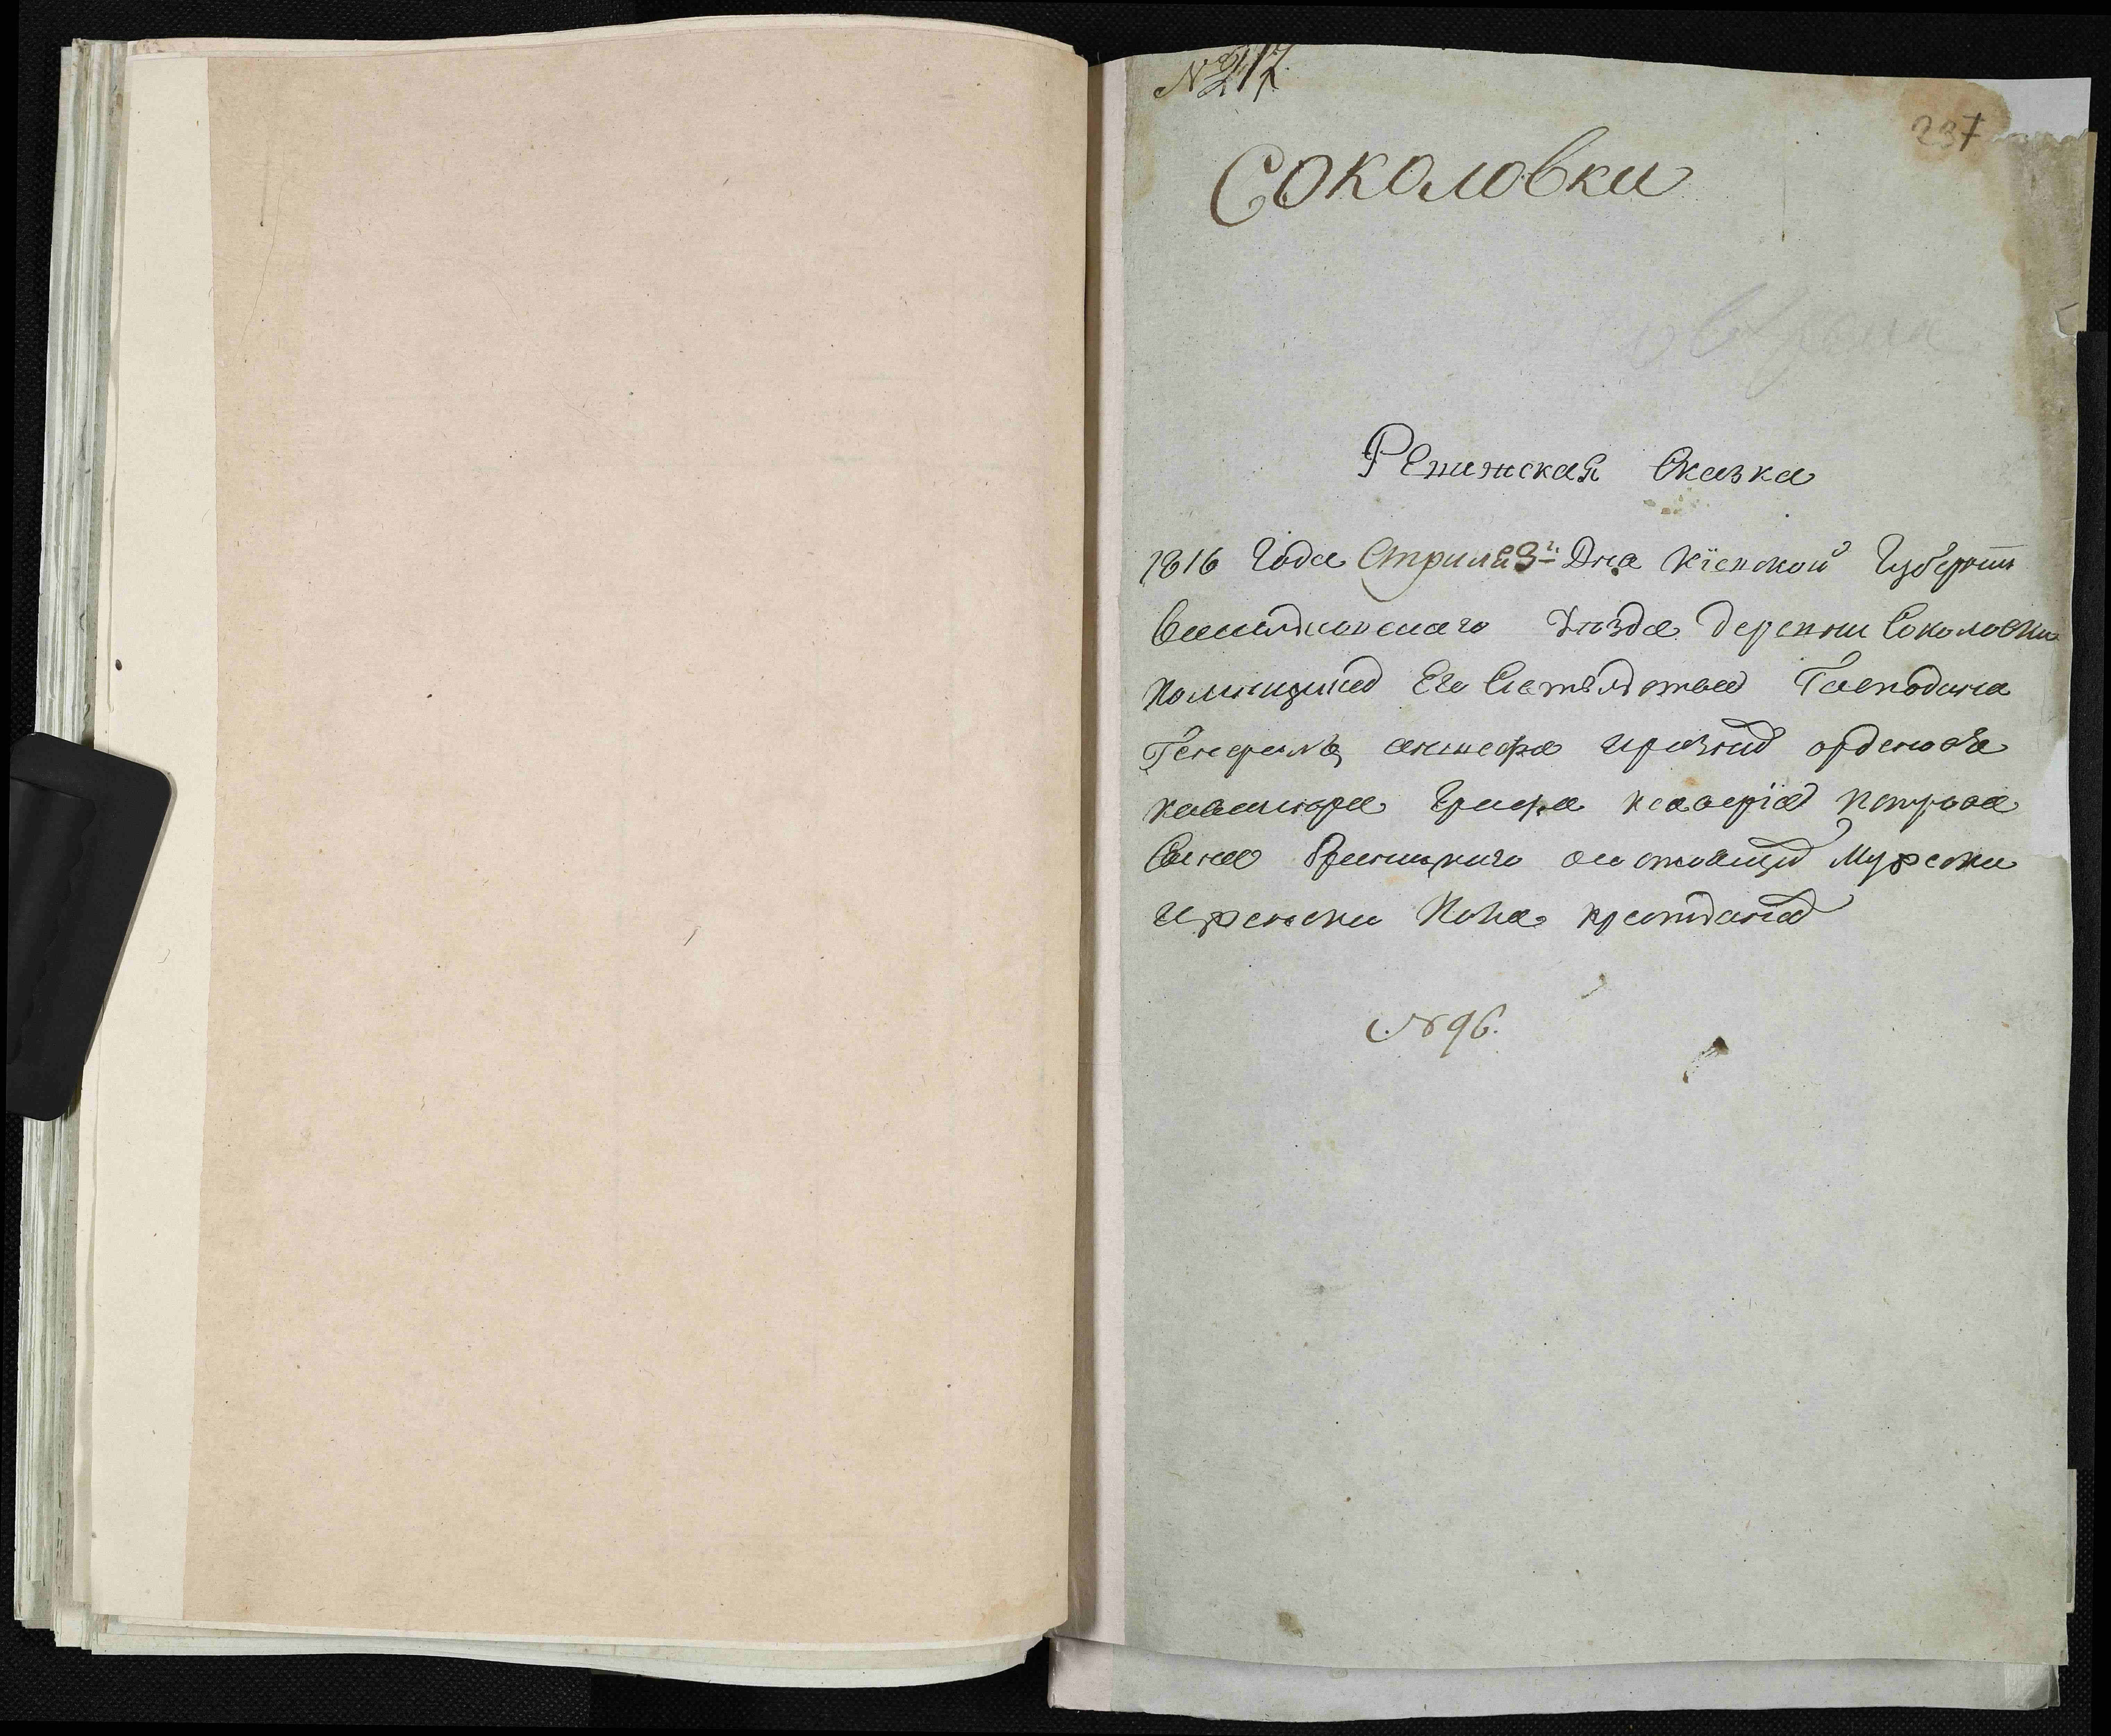 N 217.
237
Соколовки
Ревижская Сказка
1816 Года Априля 3 Дня Кіевской Губерніи
Васильковскаго Уѣзда деревни Соколовки
Помещика Его Сіятельства Господина
Генералъ аншефа и разных орденовъ
кавалера Графа Ксаверія Петрова
Сына Браницкаго о состоящих Мужеска
и женска Пола крестьянах
N 96.